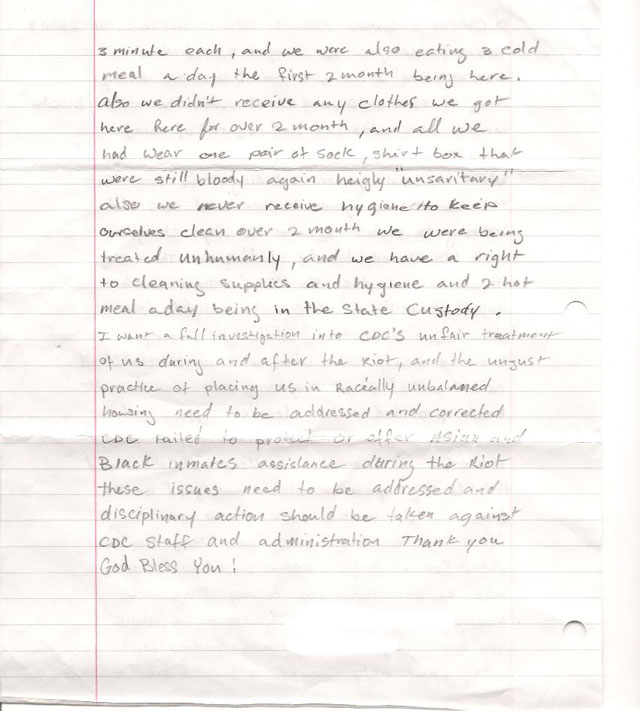 3 minute each, and we were also eating 3 cold
meal a day the first 2 month being here.
also we didn't receive any clothes we got
here here for over 2 month, and all we
had wear one pair of sock, shirt box that
were still bloody again heigly "unsanitary"
also we never receive hygiene to keep
ourselves clean over 2 month we were being
treated unhumanly, and we have a right
to cleaning supplies and hygiene and 2 hot
meal aday being in the State Custody.
I want a full investigation into CDC'S unfair treatment
of us during and after the Riot, and the unjust
practice of placing us in Racially unbalanced
housing need to be addressed and corrected
CDC failed to protect or offer Asian and
Black inmates assistance during the Riot
these issues need to be addressed and
disciplinary action should be taken against
CDC Staff and administration Thank you
God Bless You!